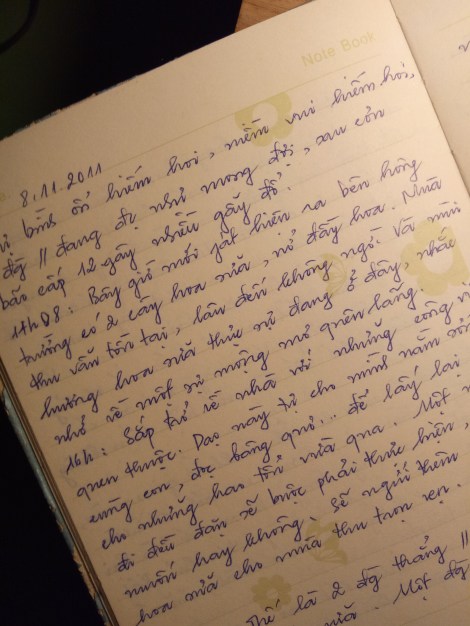 Note Book
8.11.2011
bình ổn hiếm hoi, niềm vui hiếm hoi,
đg // đang đc như mong đợi, sau cơn
bão cấp 12 gây nhiễu gãy đổ.
17h08: Bây giờ mới phát hiện ra bên hông
trường có 2 cây hoa sữa, nở đầy hoa. Mùa
thu vẫn tồn tại, lâu đến không ngờ. Và mùi
hương hoa sữa thực sự đang ở đây, nhắc
nhớ về một sự mộng mơ quên lãng.
16h: Sắp trở về nhà với những công
quen thuộc. Dạo này tự cho mình nằm
cùng con, đọc bâng quơ... để lấy lại
cho những hao tổn vừa qua. Một
đi đều đặn sẽ buộc phải thực hiện,
muốn hay không. Sẽ ngửi thêm
hoa sữa cho mùa thu trọn vẹn.
Thế là 2 đg thẳng //
nữa. Một đg